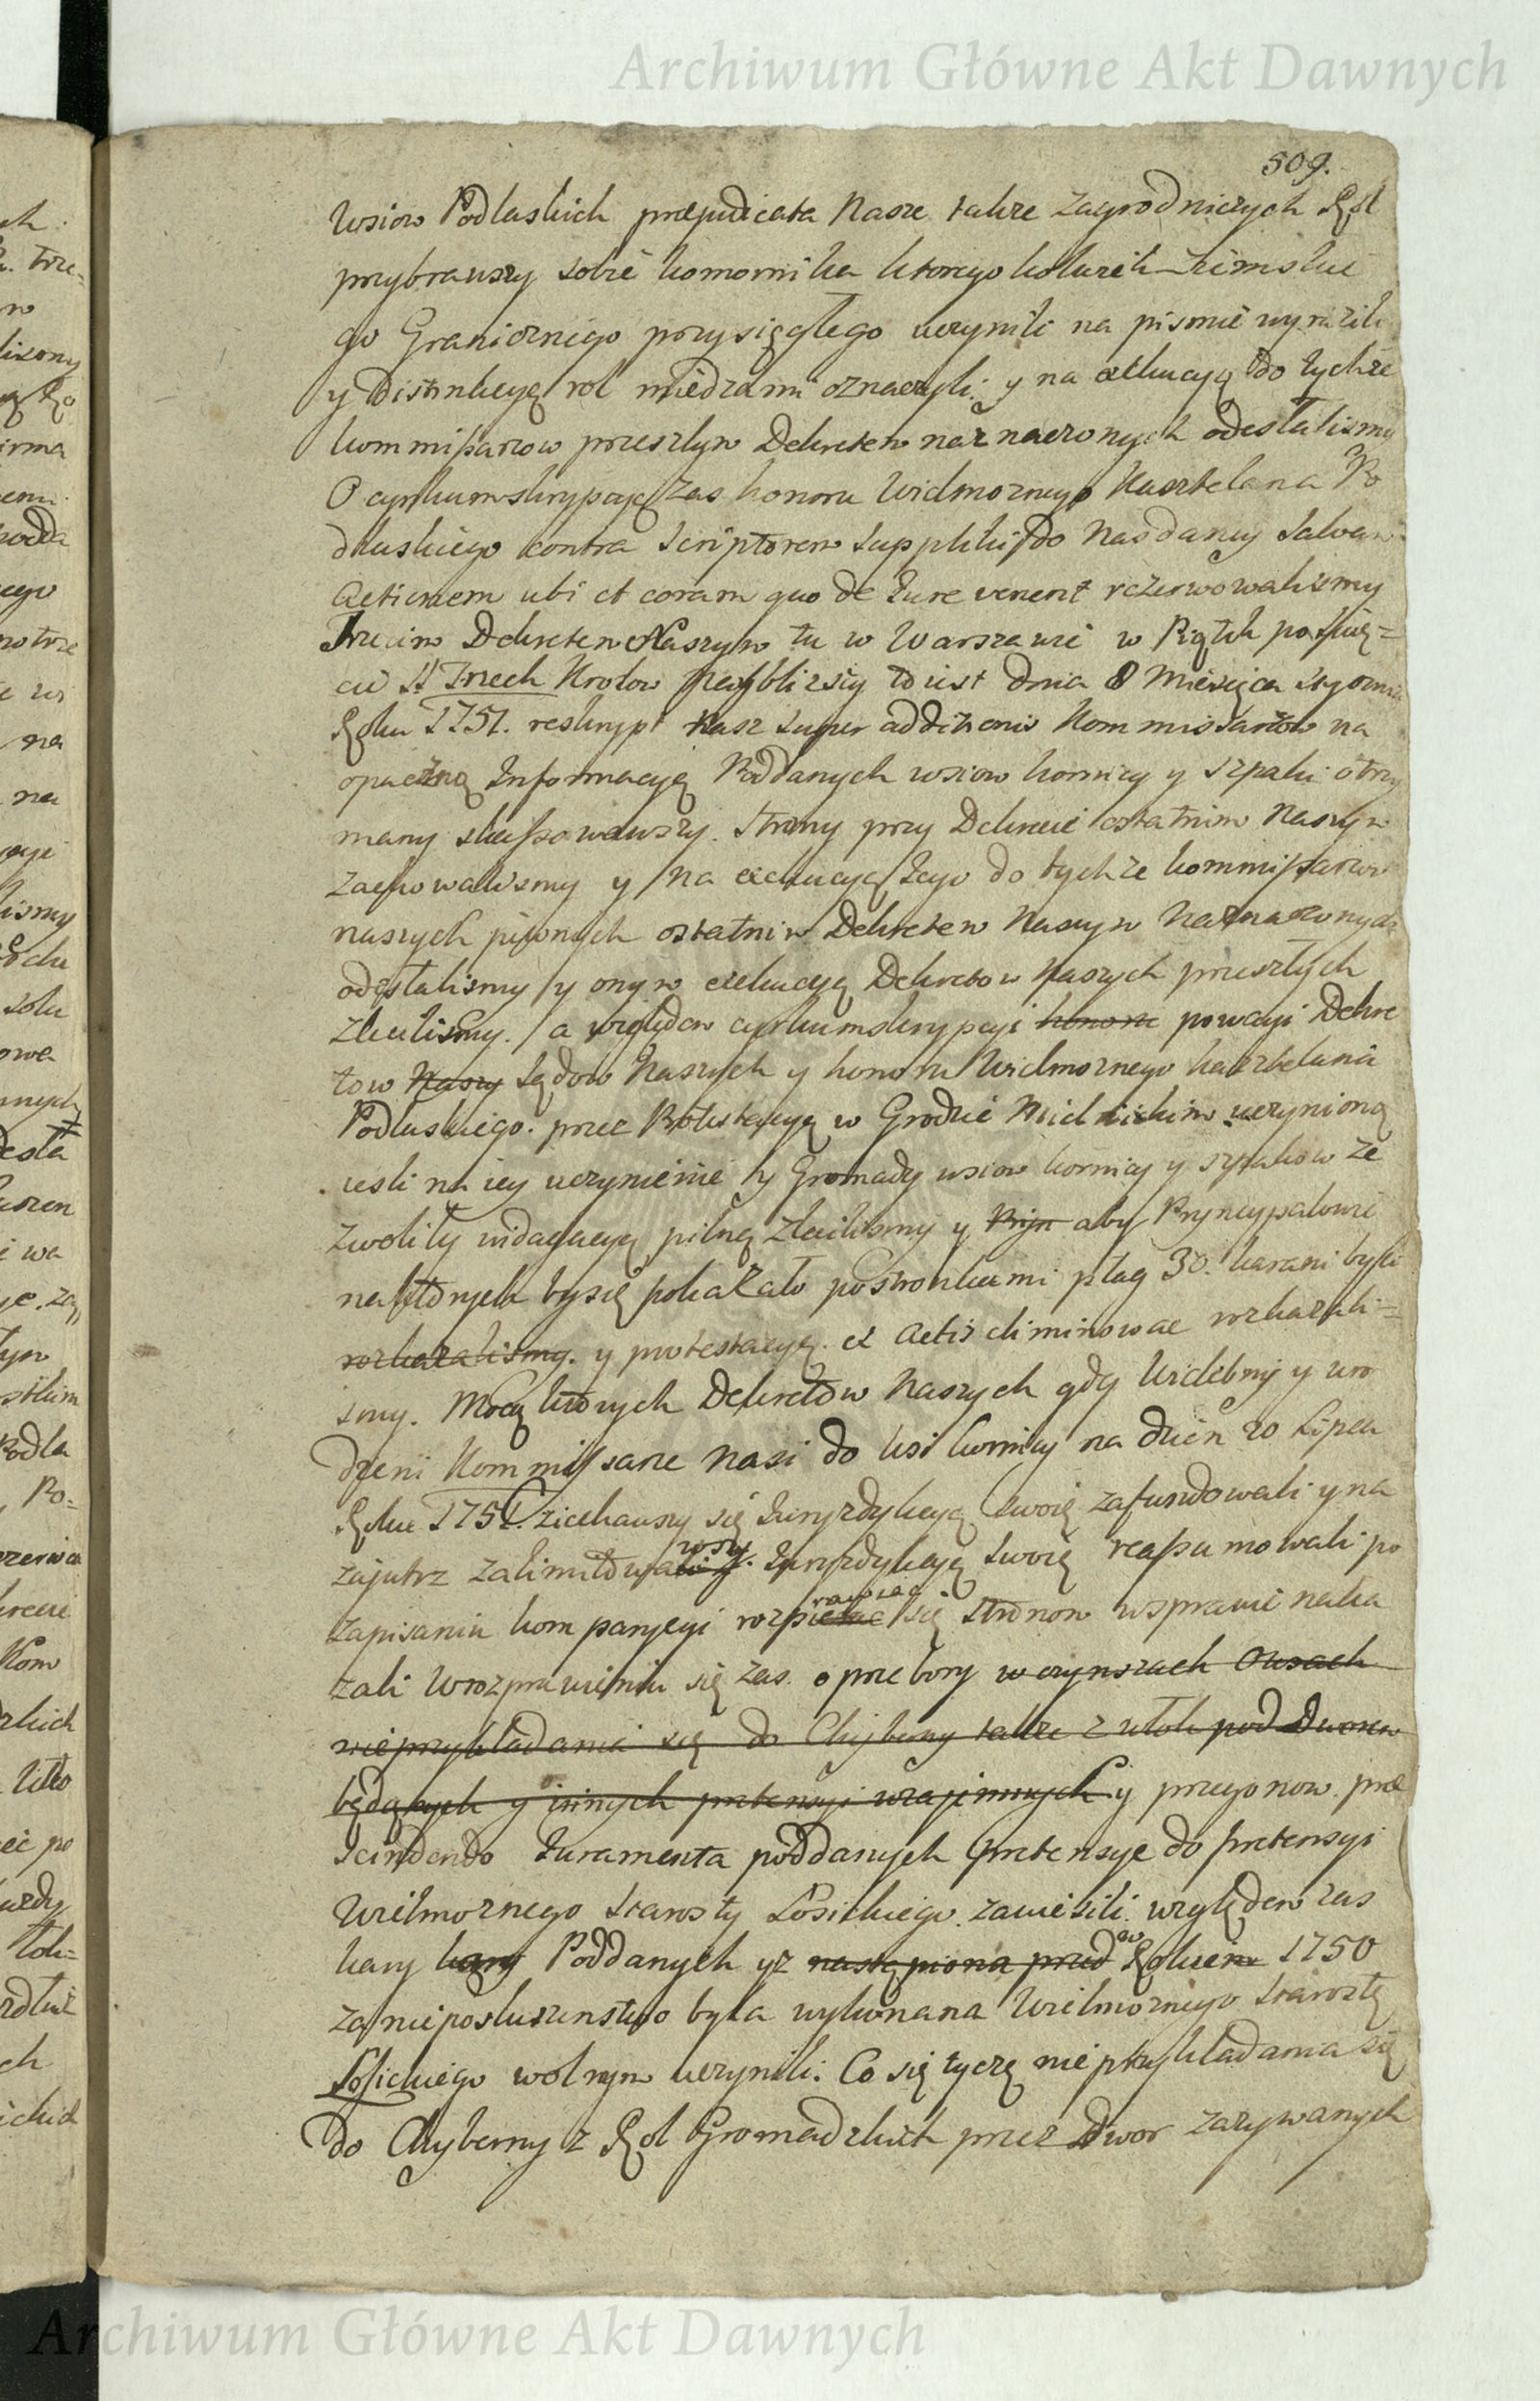 Archiwum Główne Akt Dawnych
509.
Wsiow Podlaskich præjudicata Nasze także Zagrodniczych Rol
przybrawszy sobie komornika ktoregokolwiek Ziemskie
go Granicznego przysięgłego uczynili na pismie wyrazili
y Distinkcyą rol miedzami oznaczyli. y na exekucyą do tychże
kommissarzow przeszłym Dekretem naznaczonych odesłalismy
O cyrkumskrypcyą zas honoru Wielmoznego Kasztelana Po
dlaskiego contra scriptorem suppliki do Nas daney salvam
Actionem ubi et coram quo de Jure venerit rezerwowalismy
Trzecim Dekretem Naszym tu w Warszawie w Piątek po Swię=
cie SS Trzech Krolow naybliższy to iest dnia 8 Miesiąca Stycznia
Roku 1751. reskrypt Nasz super additionis Kommissarzow na
opaczną Informacyą Poddanych wsiow kornicy y szpaki otrzy
many skassowawszy. Strony przy Dekrecie ostatnim Naszym
zachowalismy y na exekucyą Jego do tychże kommissarzow
naszych pewnych ostatnim Dekretem Naszym Naznaczonych
odesłalismy y onym exekucyą Dekretow Naszych przeszłych
zlecilismy. a względem cyrkumskrypcyi honoru powagi Dekre
tow Naszy Sądow Naszych y honoru Wielmoznego kasztelana
Podlaskiego. przez Protestacyą w Grodzie Mielnickim uczynioną
iesli na iey uczynienie ty Gromady wsiow kornicy y szpakow ze
zwoliły indagacyą pilną zlecilismy y Pryn aby Pryncypałowie
na ktorych by się pokazało postronkami plag 30. karani byli
rozkazalismy. y protestacyą ex Actis eliminować rozkazali=
smy. Mocą ktorych Dekretow Naszych gdy Wielebny y uro
dzeni Kommissarze Nasi do wsi kornicy na dzien 20 Lipca
Roku 1751. ziechawszy się Juryzdykcyą swoię zafundowali y na
zajutrz zalimitowali y. Juryzdykcyą swoię reassumowali po
wszy
zapisaniu komparycyi rozpierac się stronom w sprawie naka
rawiac
zali W rozprawieniu się zas. o przebory w czynszach Owsach
nieprzykładania się do Chyberny także z włok pod Dworem
będących y innych pretensyi wzajemnych y przegonow præ
scindendo Juramenta poddanych Pretensye do pretensyi
Wielmoznego Starosty Łosickiego. zawiesili. względem zas
kary kary Poddanych yz nastąpiona przed Rokiem 1750
za nieposłuszenstwo była wykonana Wielmoznego Starostę
Łosickiego wolnym uczynili. Co się tyczę nie przykładania się
do Chyberny z Rol Gromadzkich przez Dwor zarywanych
Archiwum Główne Akt Dawnych